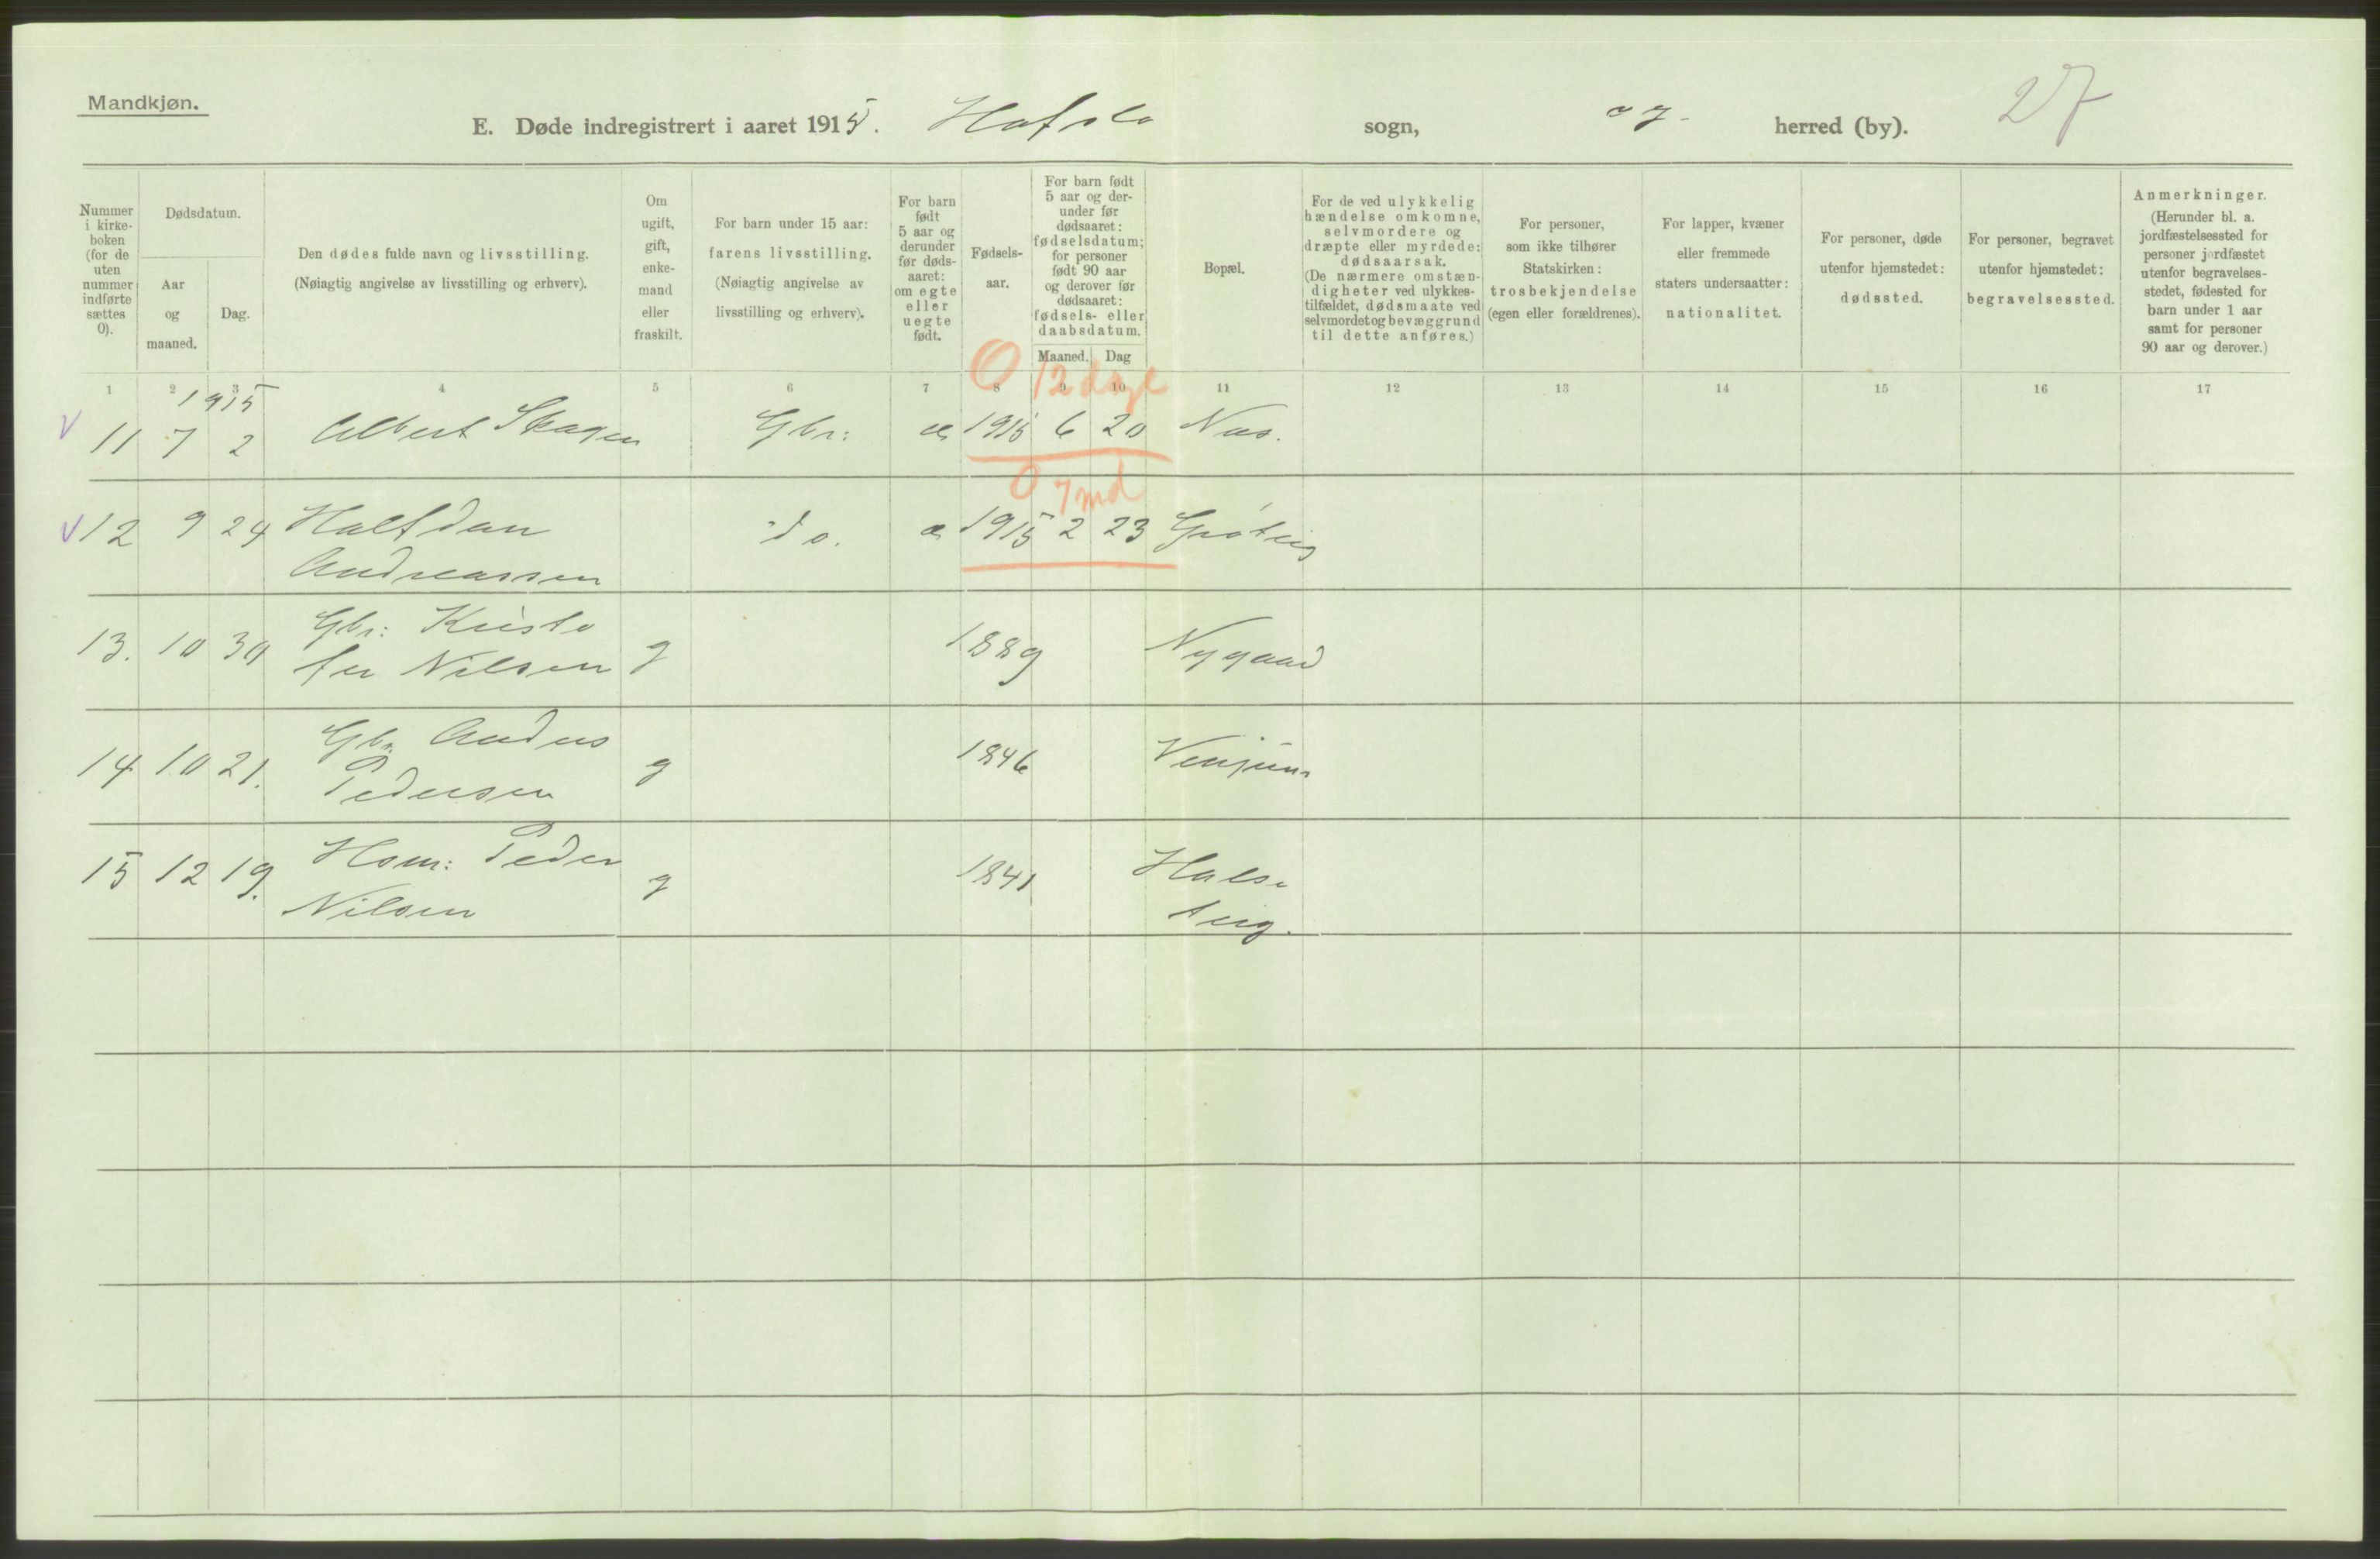 Mandkjøn.
E. Døde indregistrert i aaret 1915. Hafslo sogn, og. herred (by). 27
Nummer i kirke-boken (for de uten nummer indførte sættes 0).
Dødsdatum.
Aar og maaned.
Dag.
Den dødes fulde navn og livsstilling.
(Nøiagtig angivelse av livsstilling og erhverv).
Om ugift, gift, enke-mand eller fraskilt.
For barn under 15 aar: farens livsstilling.
(Nøiagtig angivelse av livsstilling og erhverv).
For barn født 5 aar og derunder før døds-aaret: om egte eller uegte født.
Fødsels-aar.
For barn født 5 aar og der-under før dødsaaret: fødselsdatum; for personer født 90 aar og derover før dødsaaret: fødsels- eller daabsdatum.
Maaned. Dag
Bopæl.
For de ved ulykkelig hændelse omkomne, selvmordere og dræpte eller myrdede: dødsaarsak.
(De nærmere omstæn-digheter ved ulykkes-tilfældet, dødsmaate ved selvmordet og bevæggrund til dette anføres.)
For personer, som ikke tilhører Statskirken: trosbekjendelse (egen eller forældrenes).
For lapper, kvæner eller fremmede staters undersaatter: nationalitet.
For personer, døde utenfor hjemstedet: dødssted.
For personer, begravet utenfor hjemstedet: begravelsessted.
Anmerkninger.
(Herunder bl. a. jordfæstelsessted for personer jordfæstet utenfor begravelses-stedet, fødested for barn under 1 aar samt for personer 90 aar og derover.)
1 2 3 4 5 6 7 8 9 10 11 12 13 14 15 16 17
1915
0 12 dage
V 11 7 2 Albert Skagen Gbr: æ 1915 6 20 Nes.
0 7 md
V 12 9 24 Halfdan do. æ 1915 2 23
Andreassen
13. 10 30 Gbr: Kristo g 1889 Nygaard
fer Nilsen
14 10 21. Gbr Anders g 1846 Venjum
Pedersen
15 12 19. Hsm: Peder g 1841 Halsa
Nilsen teig.